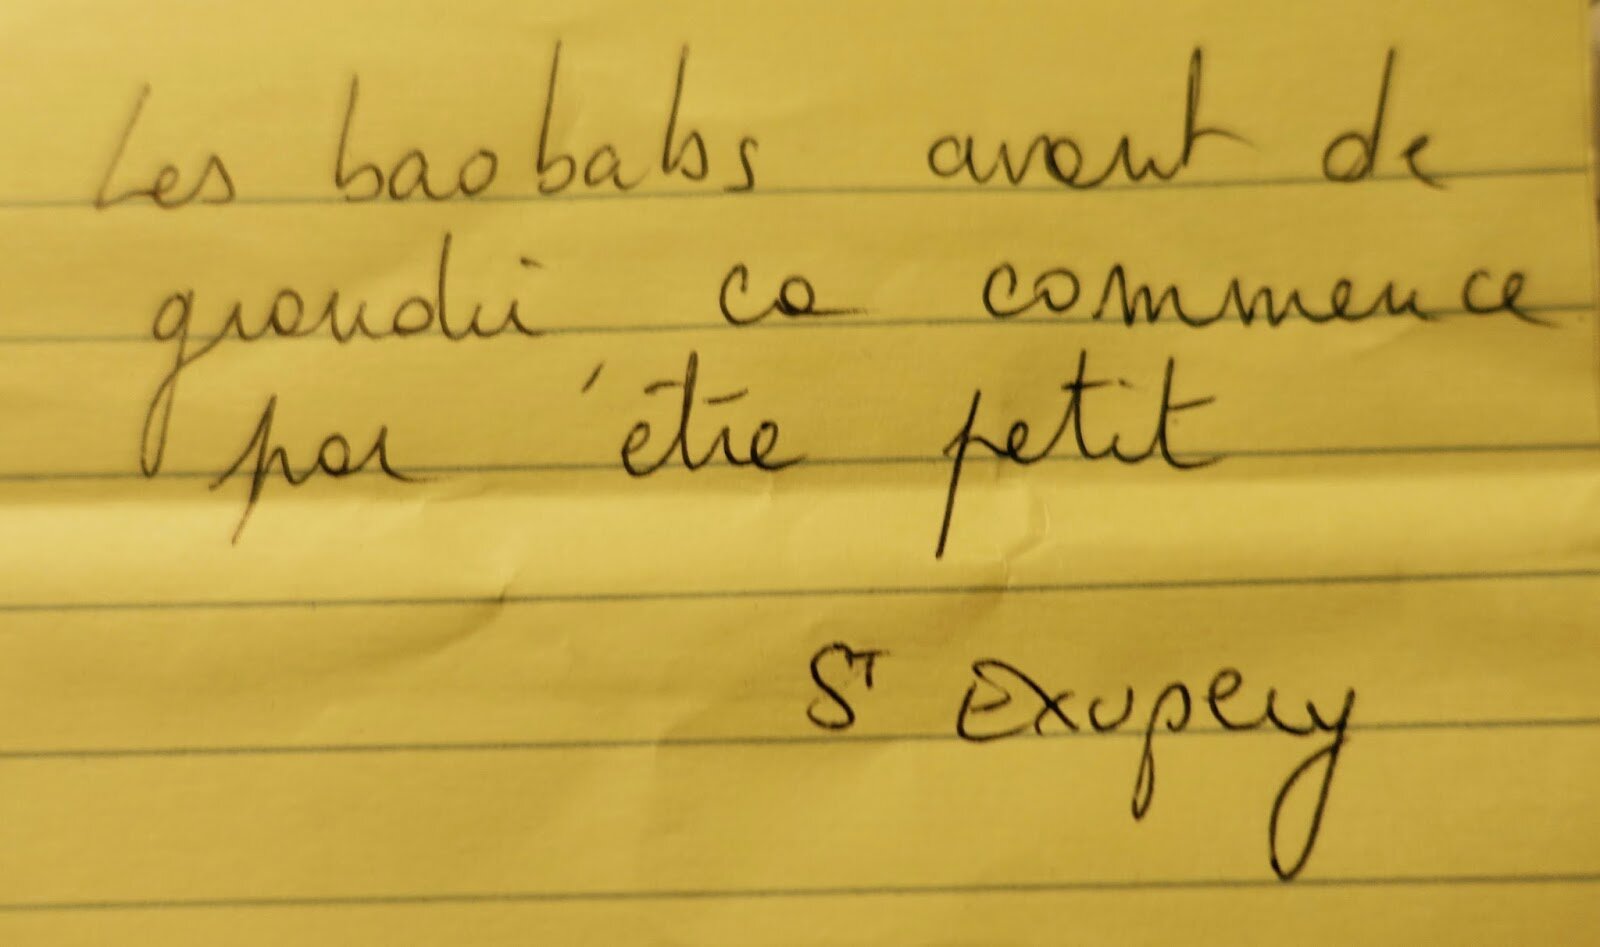 Les baobabs avant de
grandir ca commence
par être petit
ST Exupery